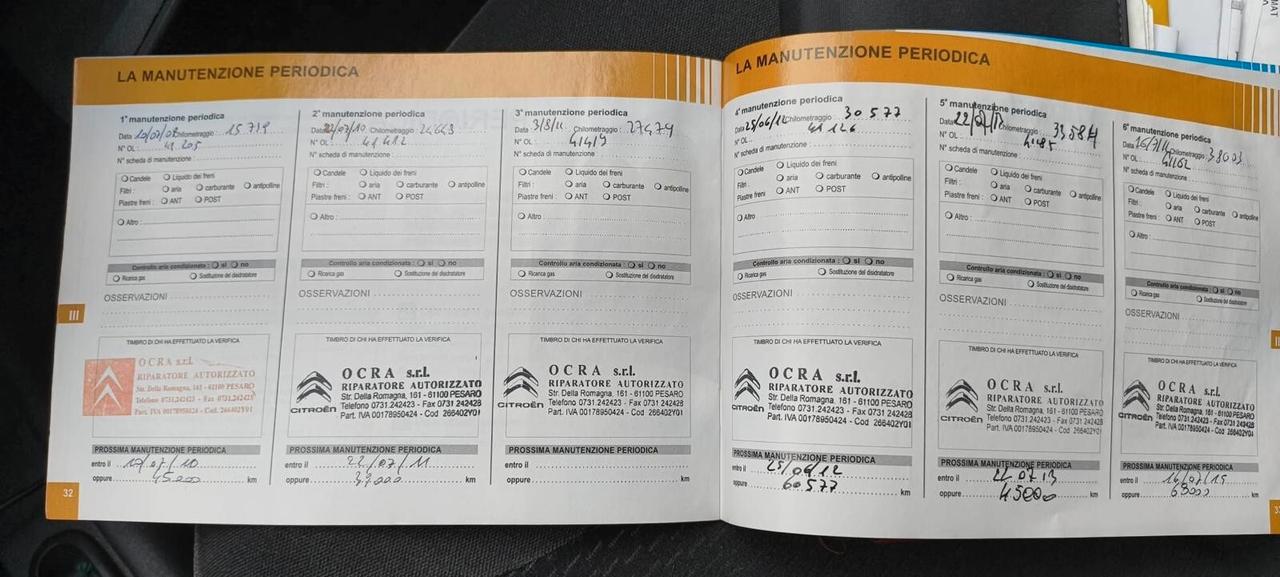 LA MANUTENZIONE PERIODICA
1ª manutenzione periodica
Data Chilometraggio 15 719
N° OL : 41 205
N° scheda di manutenzione :
Candele Liquido dei freni
Filtri : aria carburante antipolline
Piastre freni : ANT POST
Altro :
Controllo aria condizionata : si no
Ricarica gas Sostituzione del disidratatore
OSSERVAZIONI
TIMBRO DI CHI HA EFFETTUATO LA VERIFICA
OCRA s.r.l.
RIPARATORE AUTORIZZATO
Str. Della Romagna, 161 - 61100 PESARO
Telefono 0731.242423 - Fax 0731 242428
Part. IVA 00178950424 - Cod. 266402Y01
PROSSIMA MANUTENZIONE PERIODICA
entro il /07/10
oppure 45000 km
2ª manutenzione periodica
Data 22/07/10 Chilometraggio
N° OL : 41412
N° scheda di manutenzione :
Candele Liquido dei freni
Filtri : aria carburante antipolline
Piastre freni : ANT POST
Altro :
Controllo aria condizionata : si no
Ricarica gas Sostituzione del disidratatore
OSSERVAZIONI
TIMBRO DI CHI HA EFFETTUATO LA VERIFICA
OCRA s.r.l.
RIPARATORE AUTORIZZATO
Str. Della Romagna, 161 - 61100 PESARO
Telefono 0731.242423 - Fax 0731 242428
Part. IVA 00178950424 - Cod 266402Y01
CITROËN
PROSSIMA MANUTENZIONE PERIODICA
entro il 22/07/11
oppure km
3ª manutenzione periodica
Data 3/8/11 Chilometraggio 27479
N° OL : 41419
N° scheda di manutenzione :
Candele Liquido dei freni
Filtri : aria carburante antipolline
Piastre freni : ANT POST
Altro :
Controllo aria condizionata : si no
Ricarica gas Sostituzione del disidratatore
OSSERVAZIONI
TIMBRO DI CHI HA EFFETTUATO LA VERIFICA
OCRA s.r.l.
RIPARATORE AUTORIZZATO
Str. Della Romagna, 161 - 61100 PESARO
Telefono 0731.242423 - Fax 0731 242428
Part. IVA 00178950424 - Cod 266402Y01
CITROËN
PROSSIMA MANUTENZIONE PERIODICA
entro il
oppure km
III
32
LA MANUTENZIONE PERIODICA
4ª manutenzione periodica
Data Chilometraggio 30577
N° OL : 41 126
N° scheda di manutenzione :
Candele Liquido dei freni
Filtri : aria carburante antipolline
Piastre freni : ANT POST
Altro
Controllo aria condizionata : si no
Ricarica gas Sostituzione del disidratatore
OSSERVAZIONI
TIMBRO DI CHI HA EFFETTUATO LA VERIFICA
OCRA s.r.l.
RIPARATORE AUTORIZZATO
Str. Della Romagna, 161 - 61100 PESARO
Telefono 0731.242423 - Fax 0731 242428
Part. IVA 00178950424 - Cod 266402Y01
CITROËN
PROSSIMA MANUTENZIONE PERIODICA
entro il 25/06/12
oppure 60577 km
5ª manutenzione periodica
Data Chilometraggio
N° OL : 41485
N° scheda di manutenzione :
Candele Liquido dei freni
Filtri : aria carburante antipolline
Piastre freni : ANT POST
Altro :
Controllo aria condizionata : si no
Ricarica gas Sostituzione del disidratatore
OSSERVAZIONI
TIMBRO DI CHI HA EFFETTUATO LA VERIFICA
OCRA s.r.l.
RIPARATORE AUTORIZZATO
Str. Della Romagna, 161 - 61100 PESARO
Telefono 0731.242423 - Fax 0731 242428
Part. IVA 00178950424 - Cod 266402Y01
CITROËN
PROSSIMA MANUTENZIONE PERIODICA
entro il 22 07 13
oppure 45000 km
6ª manutenzione periodica
Data 16/7/14 Chilometraggio
N° OL : 41162
N° scheda di manutenzione
Candele Liquido dei freni
Filtri : aria carburante antipolline
Piastre freni : ANT POST
Altro :
Controllo aria condizionata : si no
Ricarica gas Sostituzione del disidratatore
OSSERVAZIONI
TIMBRO DI CHI HA EFFETTUATO LA VERIFICA
OCRA s.r.l.
RIPARATORE AUTORIZZATO
Str. Della Romagna, 161 - 61100 PESARO
Telefono 0731.242423 - Fax 0731 242428
Part. IVA 00178950424 - Cod 266402Y01
CITROËN
PROSSIMA MANUTENZIONE PERIODICA
entro il 16/07/15
oppure km